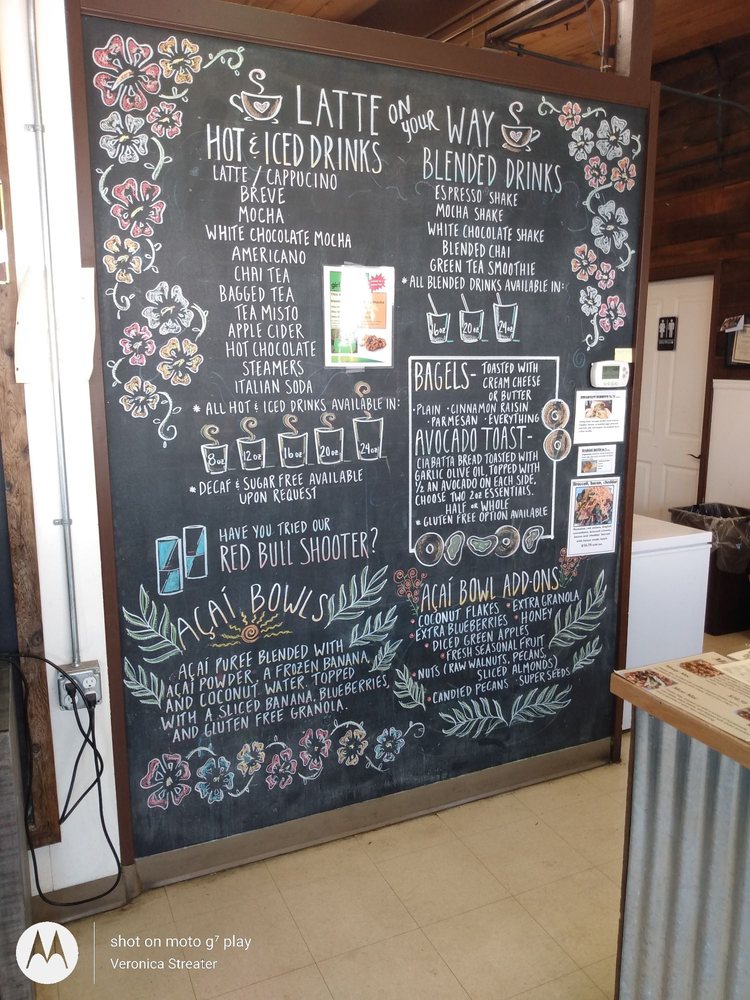 LATTE ON YOUR WAY
HOT & ICED DRINKS
LATTE / CAPPUCINO
BREVE
MOCHA
WHITE CHOCOLATE MOCHA
AMERICANO
CHAI TEA
BAGGED TEA
TEA MISTO
APPLE CIDER
HOT CHOCOLATE
STEAMERS
ITALIAN SODA
* ALL HOT & ICED DRINKS AVAILABLE IN:
8oz 12oz 16oz 20oz 24oz
* DECAF & SUGAR FREE AVAILABLE
UPON REQUEST
BLENDED DRINKS
ESPRESSO SHAKE
MOCHA SHAKE
WHITE CHOCOLATE SHAKE
BLENDED CHAI
GREEN TEA SMOOTHIE
* ALL BLENDED DRINKS AVAILABLE IN:
16oz 20oz 24oz
BAGELS- TOASTED WITH
CREAM CHEESE
OR BUTTER
· PLAIN · CINNAMON RAISIN
· PARMESAN · EVERYTHING
AVOCADO TOAST-
CIABATTA BREAD TOASTED WITH
GARLIC OLIVE OIL, TOPPED WITH
1/2 AN AVOCADO ON EACH SIDE.
CHOOSE TWO 2oz ESSENTIALS.
HALF OR WHOLE
* GLUTEN FREE OPTION AVAILABLE
HAVE YOU TRIED OUR
RED BULL SHOOTER?
AÇAÍ BOWLS
AÇAI PUREE BLENDED WITH
AÇAI POWDER, A FROZEN BANANA,
AND COCONUT WATER. TOPPED
WITH A SLICED BANANA, BLUEBERRIES,
AND GLUTEN FREE GRANOLA.
AÇAÍ BOWL ADD-ONS
COCONUT FLAKES · EXTRA GRANOLA
EXTRA BLUEBERRIES · HONEY
· DICED GREEN APPLES
· FRESH SEASONAL FRUIT
· NUTS (RAW WALNUTS, PECANS,
SLICED ALMONDS)
· CANDIED PECANS · SUPER SEEDS
Broccoli, bacon, cheddar
shot on moto g⁷ play
Veronica Streater